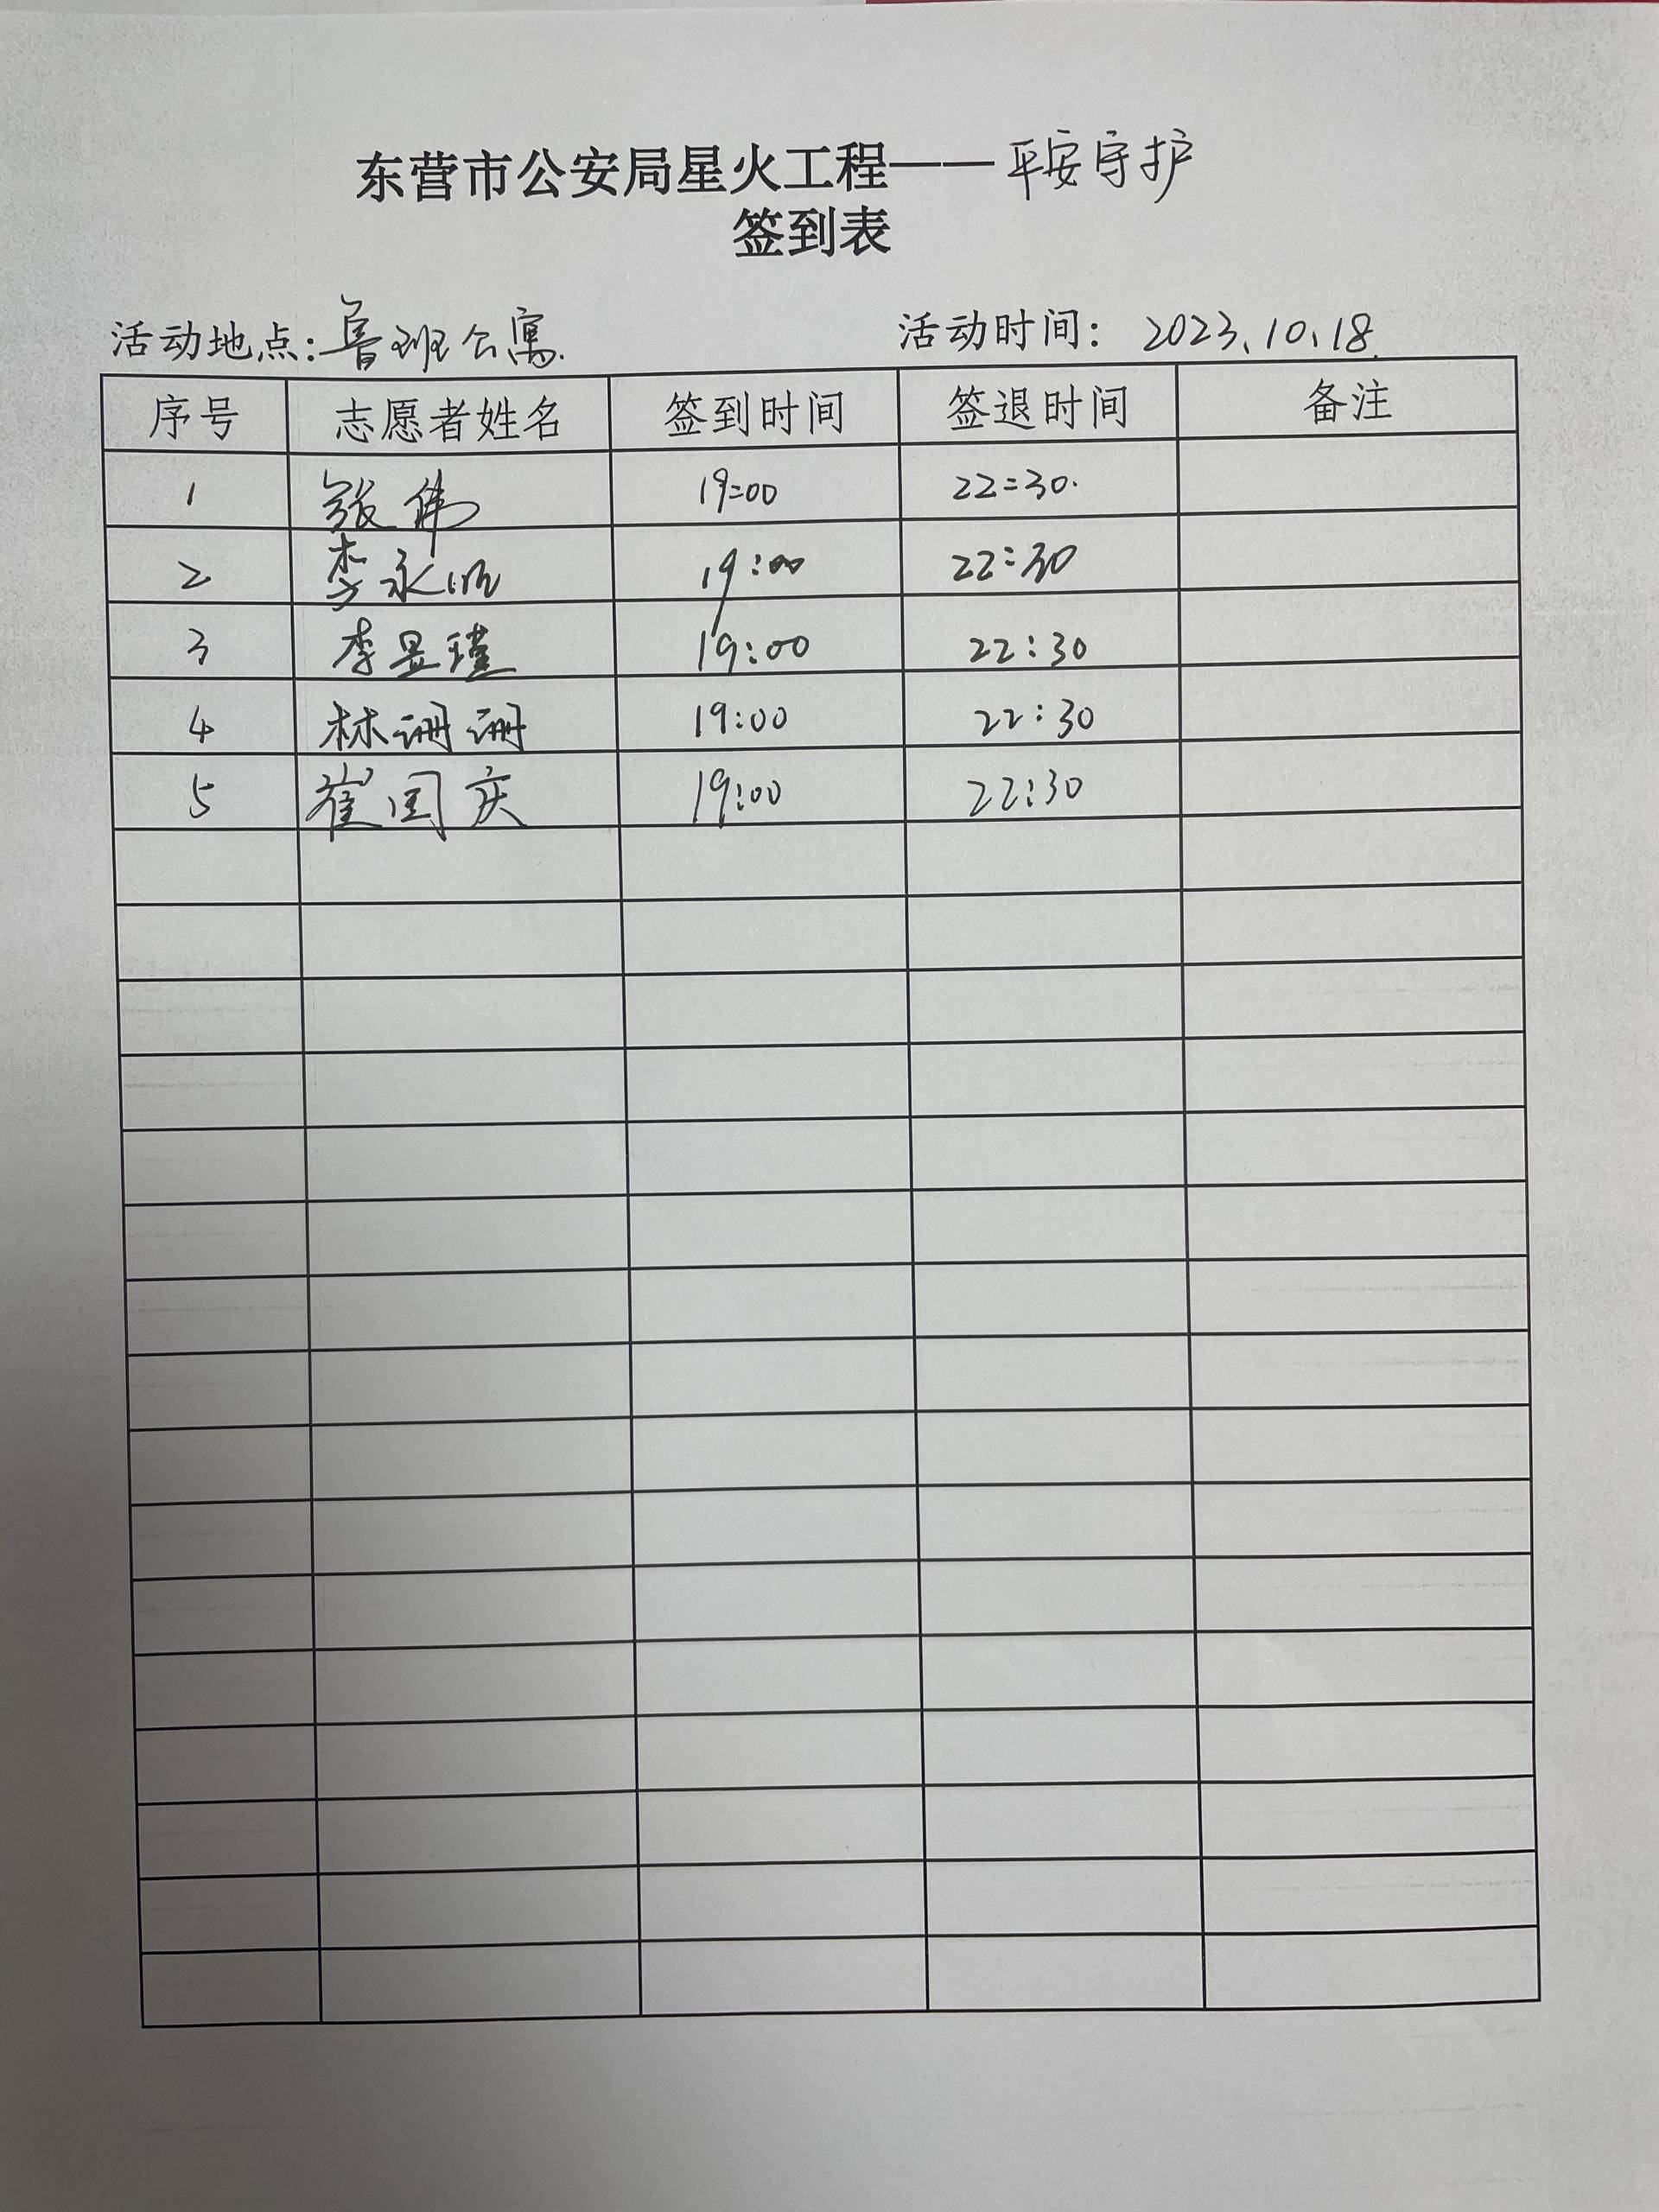 东营市公安局星火工程——平安守护
签到表
活动地点:鲁班公寓. 活动时间: 2023.10.18.
序号 志愿者姓名 签到时间 签退时间 备注
1 张伟 19:00 22:30.
2 李永明 19:00 22:30
3 李昱瑾 19:00 22:30
4 林珊珊 19:00 22:30
5 崔国庆 19:00 22:30